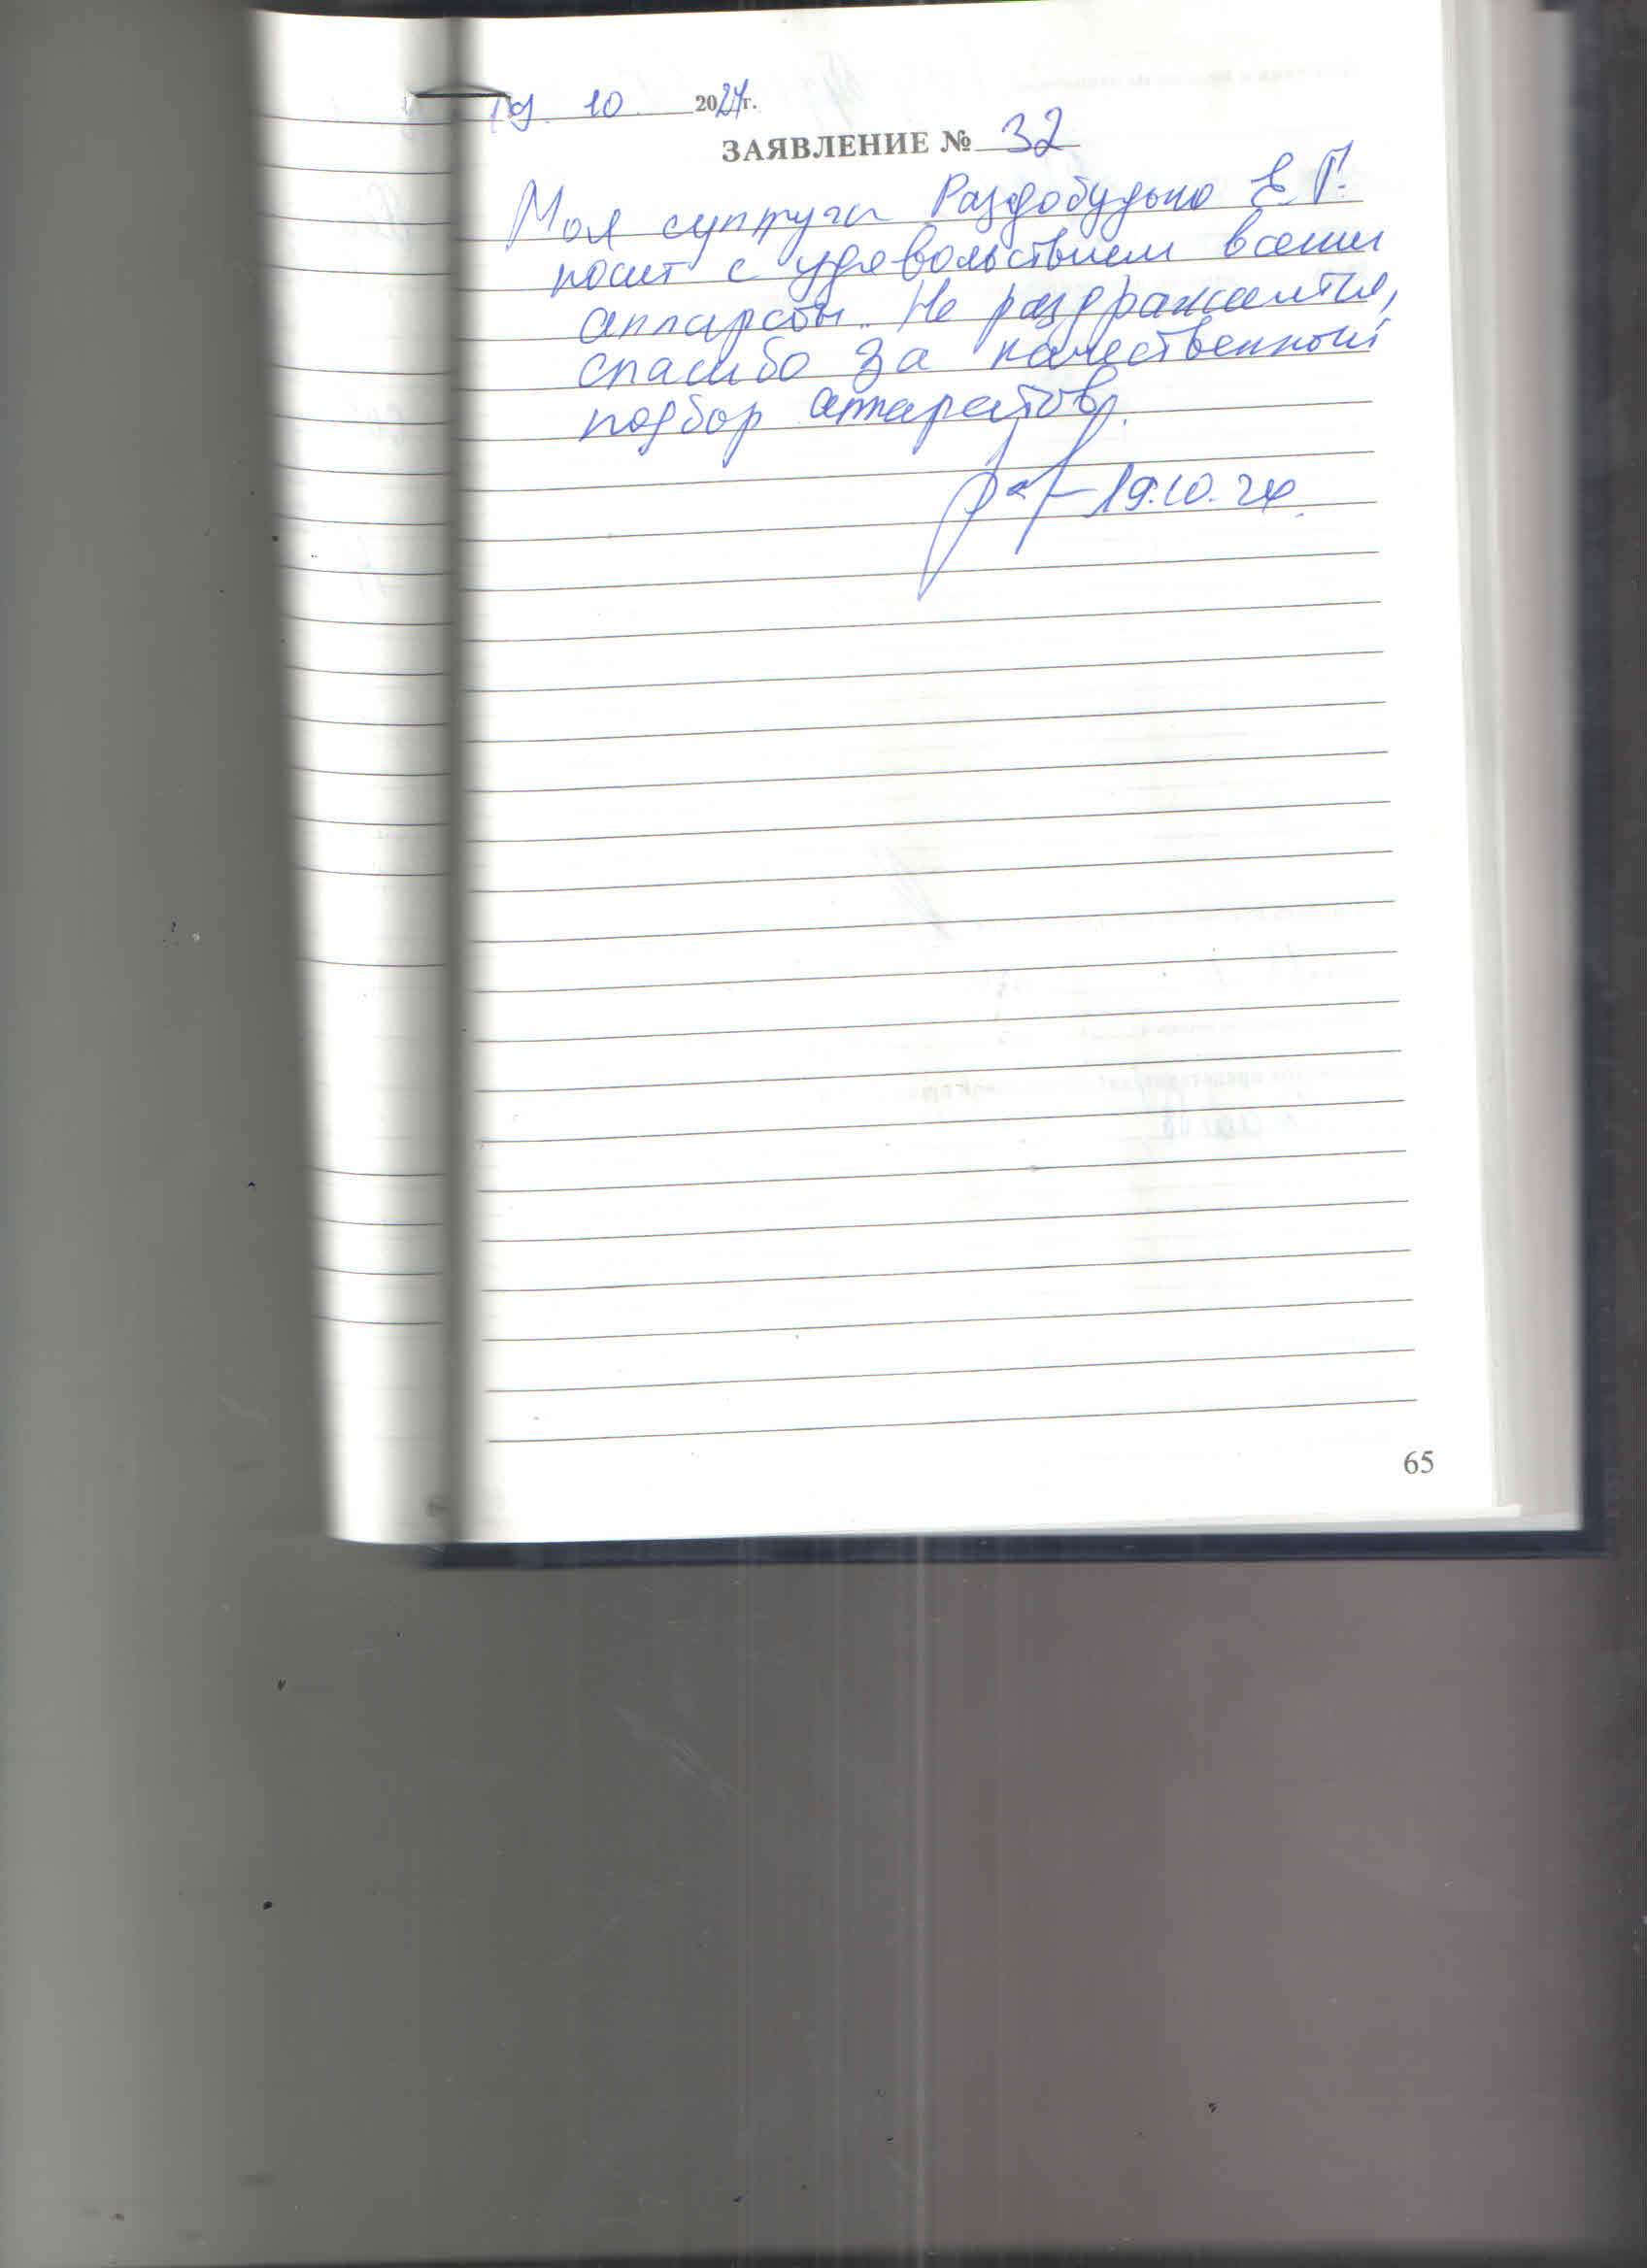 19. 10 2024г.
ЗАЯВЛЕНИЕ № 32
Моя супруга Раздобудько Е.Г.
носит с удовольствием
аппараты. Не раздражается,
спасибо за качественный
подбор аппаратов.
19.10.24
65